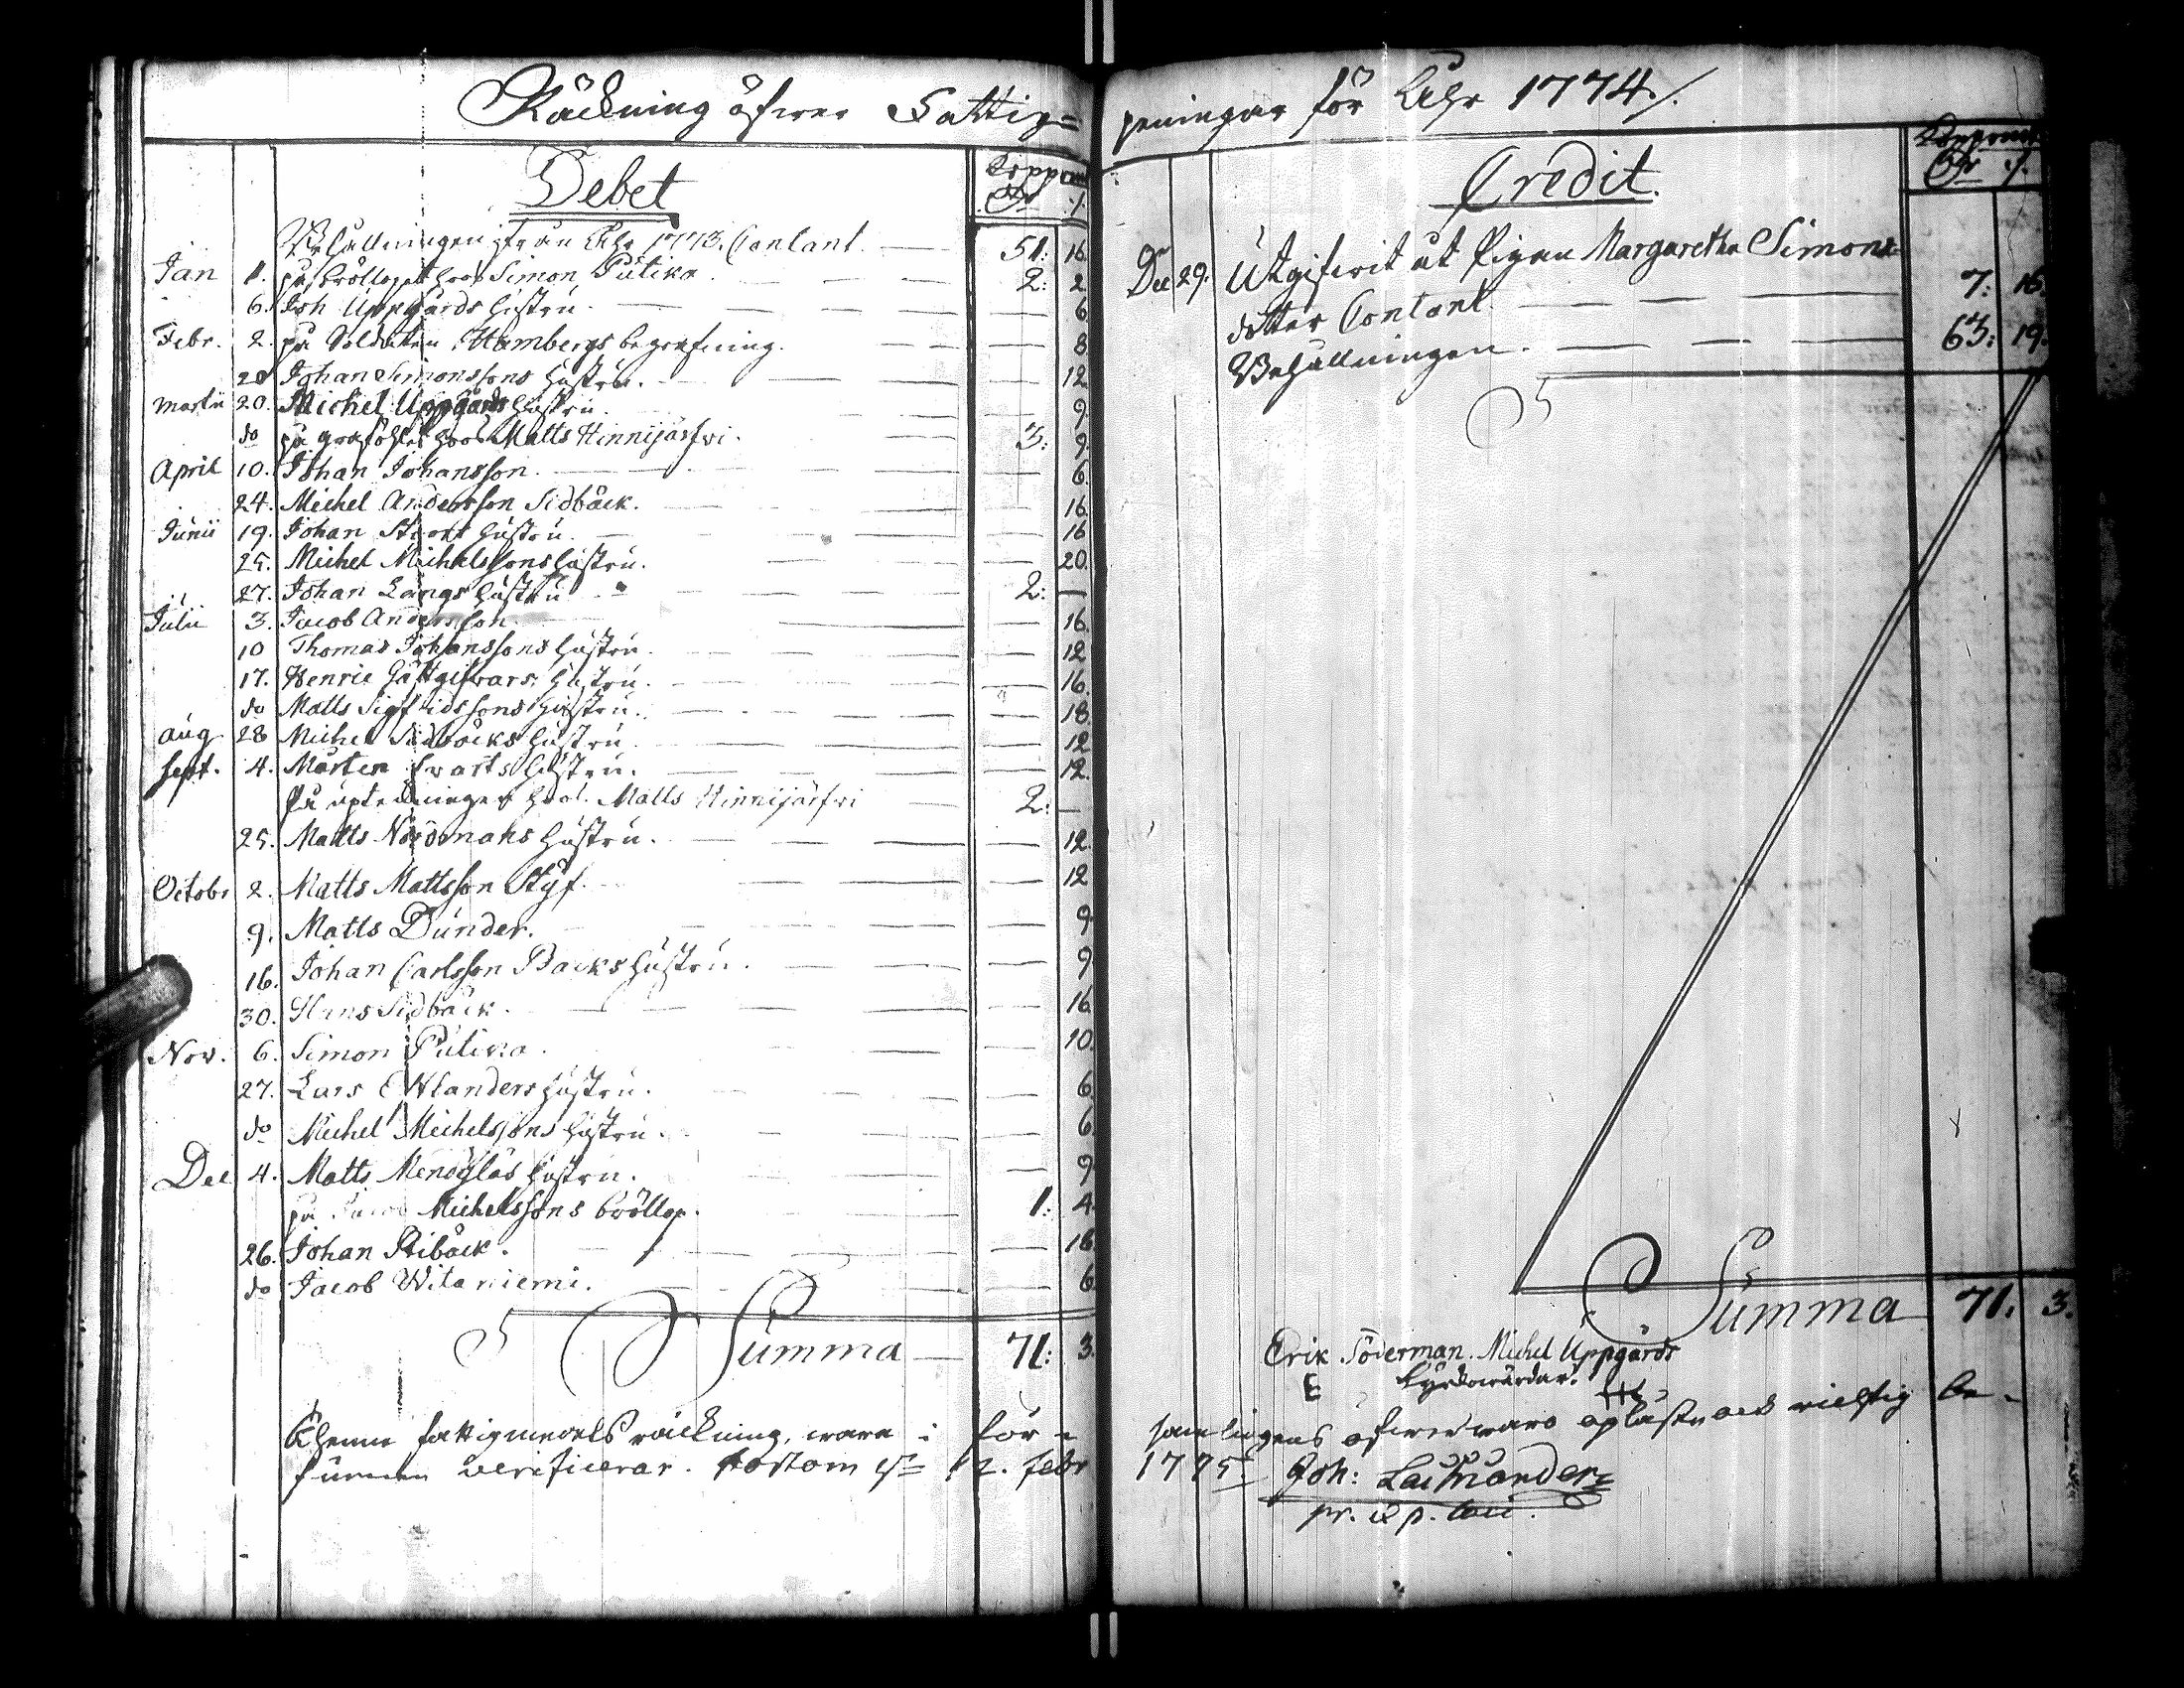 Räckning öfwer Fattig=
Debet
Koppmt
Dr ./.
Behållningen från Åhr 1773. Contant. — 51: 16.
Jan 1. på bröllopet hoos Simon Putika. — 2: 2
6. Joh Uppgårds hustru — 6
Febr. 2. på Soldaten Hambergs begrafning. — 8
20 Johan Simonssons hustru. — 12
Martii 20. Michel Uppgårds hustru — 9.
do på grafölet hoos Matts Hinnijärfwi. — 3: 9.
April 10. Johan Johansson. — 6.
24. Michel Andersson Sidbäck. — 16.
Junii 19. Johan Stoort hustru. — 16
25. Michel Michelssons hustru. — 20.
27. Johan Langs hustru — 2: —
Julii 3. Jacob Andersson. — 16.
10 Thomas Johanssons hustru. — 12
17. Henric Gästgifwars hustru. — 16.
do Matts Sigfridssons hustru. — 18.
Aug 28 Michel Sidbäcks hustru — 12
Sept. 4. Mårten Swarts hustru. — 12.
På hoos Matts Hinnijärfwi — 2: —
25. Matts Nordmans hustru. — 12.
Octobr 2. Matts Mattsson Styf. — 12
9. Matts Dunder. — 9.
16. Johan Carlsson Backs hustru. — 9
30. Hans Sidbäck. — 16
Nov. 6. Simon Putika. — 10.
27. Lars hustru. — 6.
do Michel Michelssons hustru. — 6.
Dec 4. Matts hustru. — 9.
på Michelssons bröllop. — 1: 4.
26. Johan Stibäck. — 16.
do Jacob Witaniemi. — 6.
Summa — 71: 3.
fattigmedels räckning, warn i för-
funnen verificerar. Bostom 12. Febr
peningar för Åhr 1774./.
Credit.
Dr ./.
Dec 29. Utgifwit åt Pigan Margaretha Simons-
dotter Contant. — 7: 16.
Behållningen. — 63: 19.
Summa 71. 3.
Erik Söderman. Michel Uppgårds
Kyrkowärdar.
samlingens öfwerwaro opläsen och richtig be-
1775 Joh: